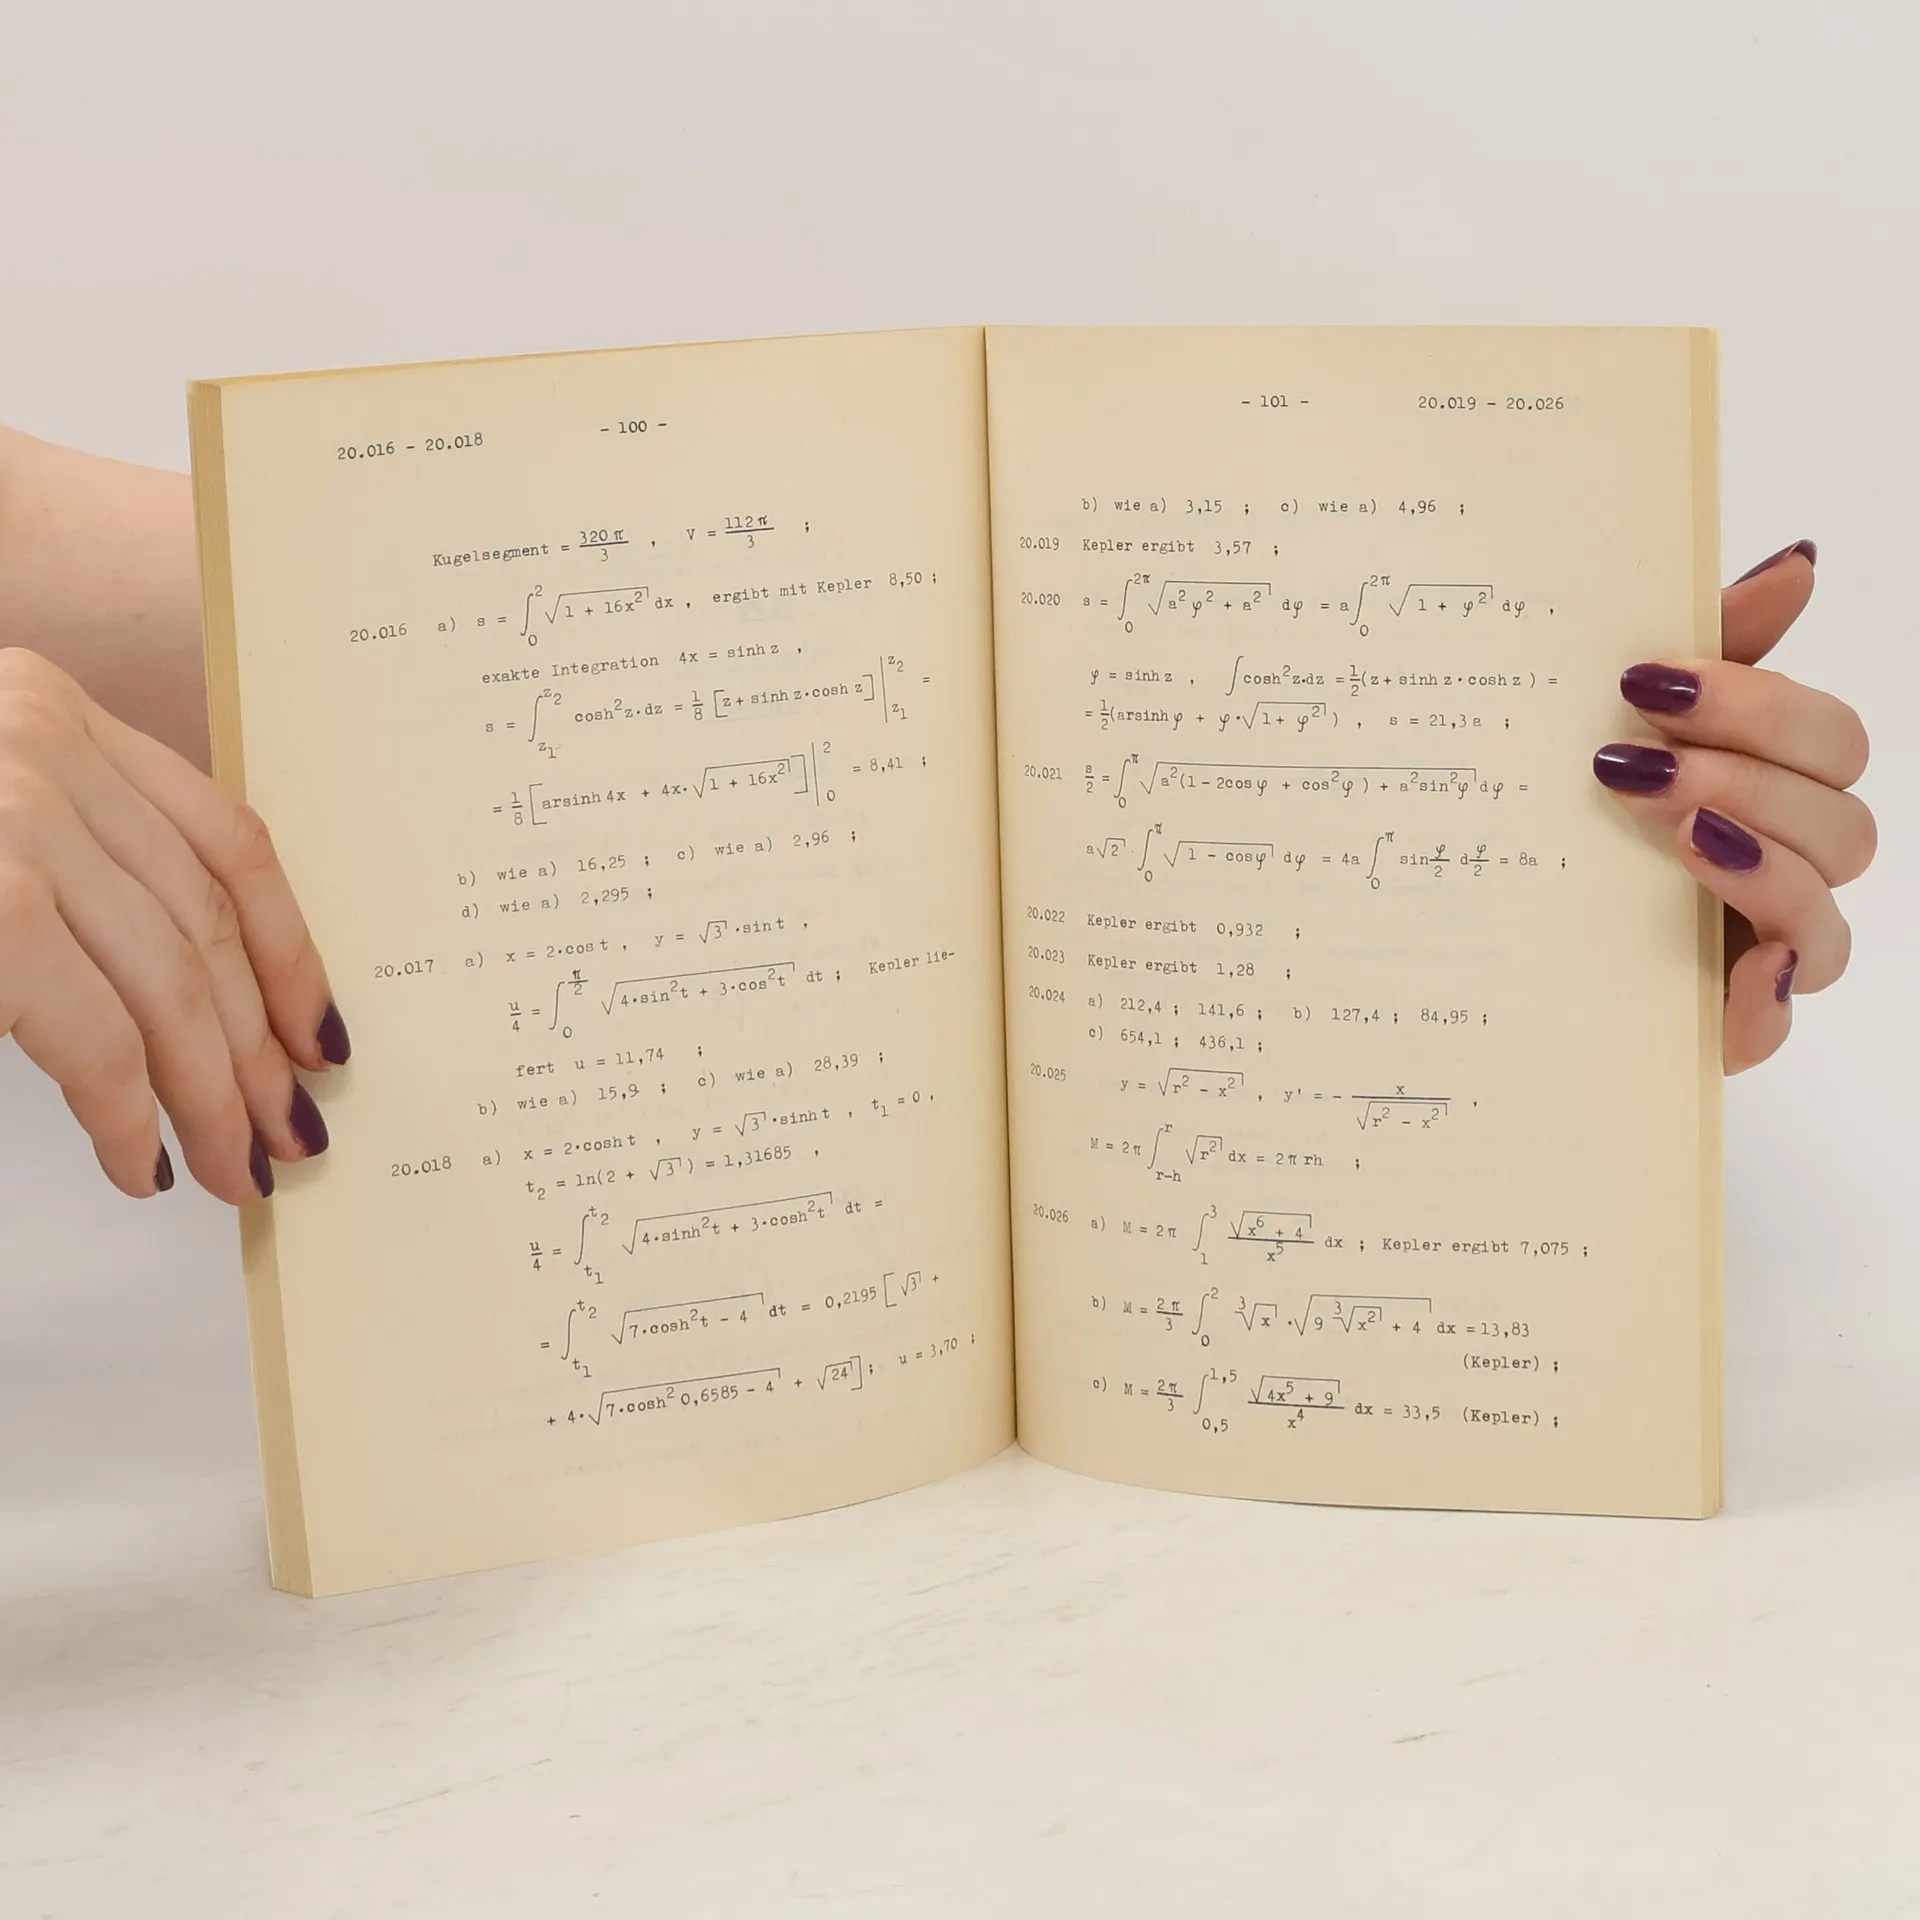 20.016 - 20.018 - 100 -
Kugelsegment = 320 π/3 , V = 112 π/3 ;
20.016 a) s = ∫₀² √(1 + 16x²) dx , ergibt mit Kepler 8,50 ;
exakte Integration 4x = sinh z ,
s = ∫_z₁^z₂ cosh²z·dz = 1/8 [z + sinh z·cosh z] |_z₁^z₂ =
= 1/8 [arsinh 4x + 4x·√(1 + 16x²)] |₀² = 8,41 ;
b) wie a) 16,25 ; c) wie a) 2,96 ;
d) wie a) 2,295 ;
20.017 a) x = 2·cos t , y = √3·sin t ,
u/4 = ∫₀^(π/2) √(4·sin²t + 3·cos²t) dt ; Kepler lie-
fert u = 11,74 ;
b) wie a) 15,9 ; c) wie a) 28,39 ;
20.018 a) x = 2·cosh t , y = √3·sinh t , t₁ = 0 ,
t₂ = ln(2 + √3) = 1,31685 ,
u/4 = ∫_t₁^t₂ √(4·sinh²t + 3·cosh²t) dt =
= ∫_t₁^t₂ √(7·cosh²t - 4) dt = 0,2195 [√3 +
+ 4·√(7·cosh² 0,6585 - 4) + √24] ; u = 3,70 ;
- 101 - 20.019 - 20.026
b) wie a) 3,15 ; c) wie a) 4,96 ;
20.019 Kepler ergibt 3,57 ;
20.020 s = ∫₀^2π √(a²φ² + a²) dφ = a ∫₀^2π √(1 + φ²) dφ ,
φ = sinh z , ∫cosh²z·dz = 1/2(z + sinh z·cosh z) =
= 1/2(arsinh φ + φ·√(1 + φ²)) , s = 21,3 a ;
20.021 s/2 = ∫₀^π √(a²(1 - 2cos φ + cos²φ) + a²sin²φ) dφ =
a√2·∫₀^π √(1 - cos φ) dφ = 4a ∫₀^π sin φ/2 d φ/2 = 8a ;
20.022 Kepler ergibt 0,932 ;
20.023 Kepler ergibt 1,28 ;
20.024 a) 212,4 ; 141,6 ; b) 127,4 ; 84,95 ;
c) 654,1 ; 436,1 ;
20.025 y = √(r² - x²) , y' = - x/√(r² - x²) ,
M = 2π ∫_(r-h)^r √(r²) dx = 2π rh ;
20.026 a) M = 2π ∫₁³ √(x⁶ + 4)/x⁵ dx ; Kepler ergibt 7,075 ;
b) M = 2π/3 ∫₀² ³√x·√(9 ³√(x²) + 4) dx = 13,83
(Kepler) ;
c) M = 2π/3 ∫_0,5^1,5 √(4x⁵ + 9)/x⁴ dx = 33,5 (Kepler) ;